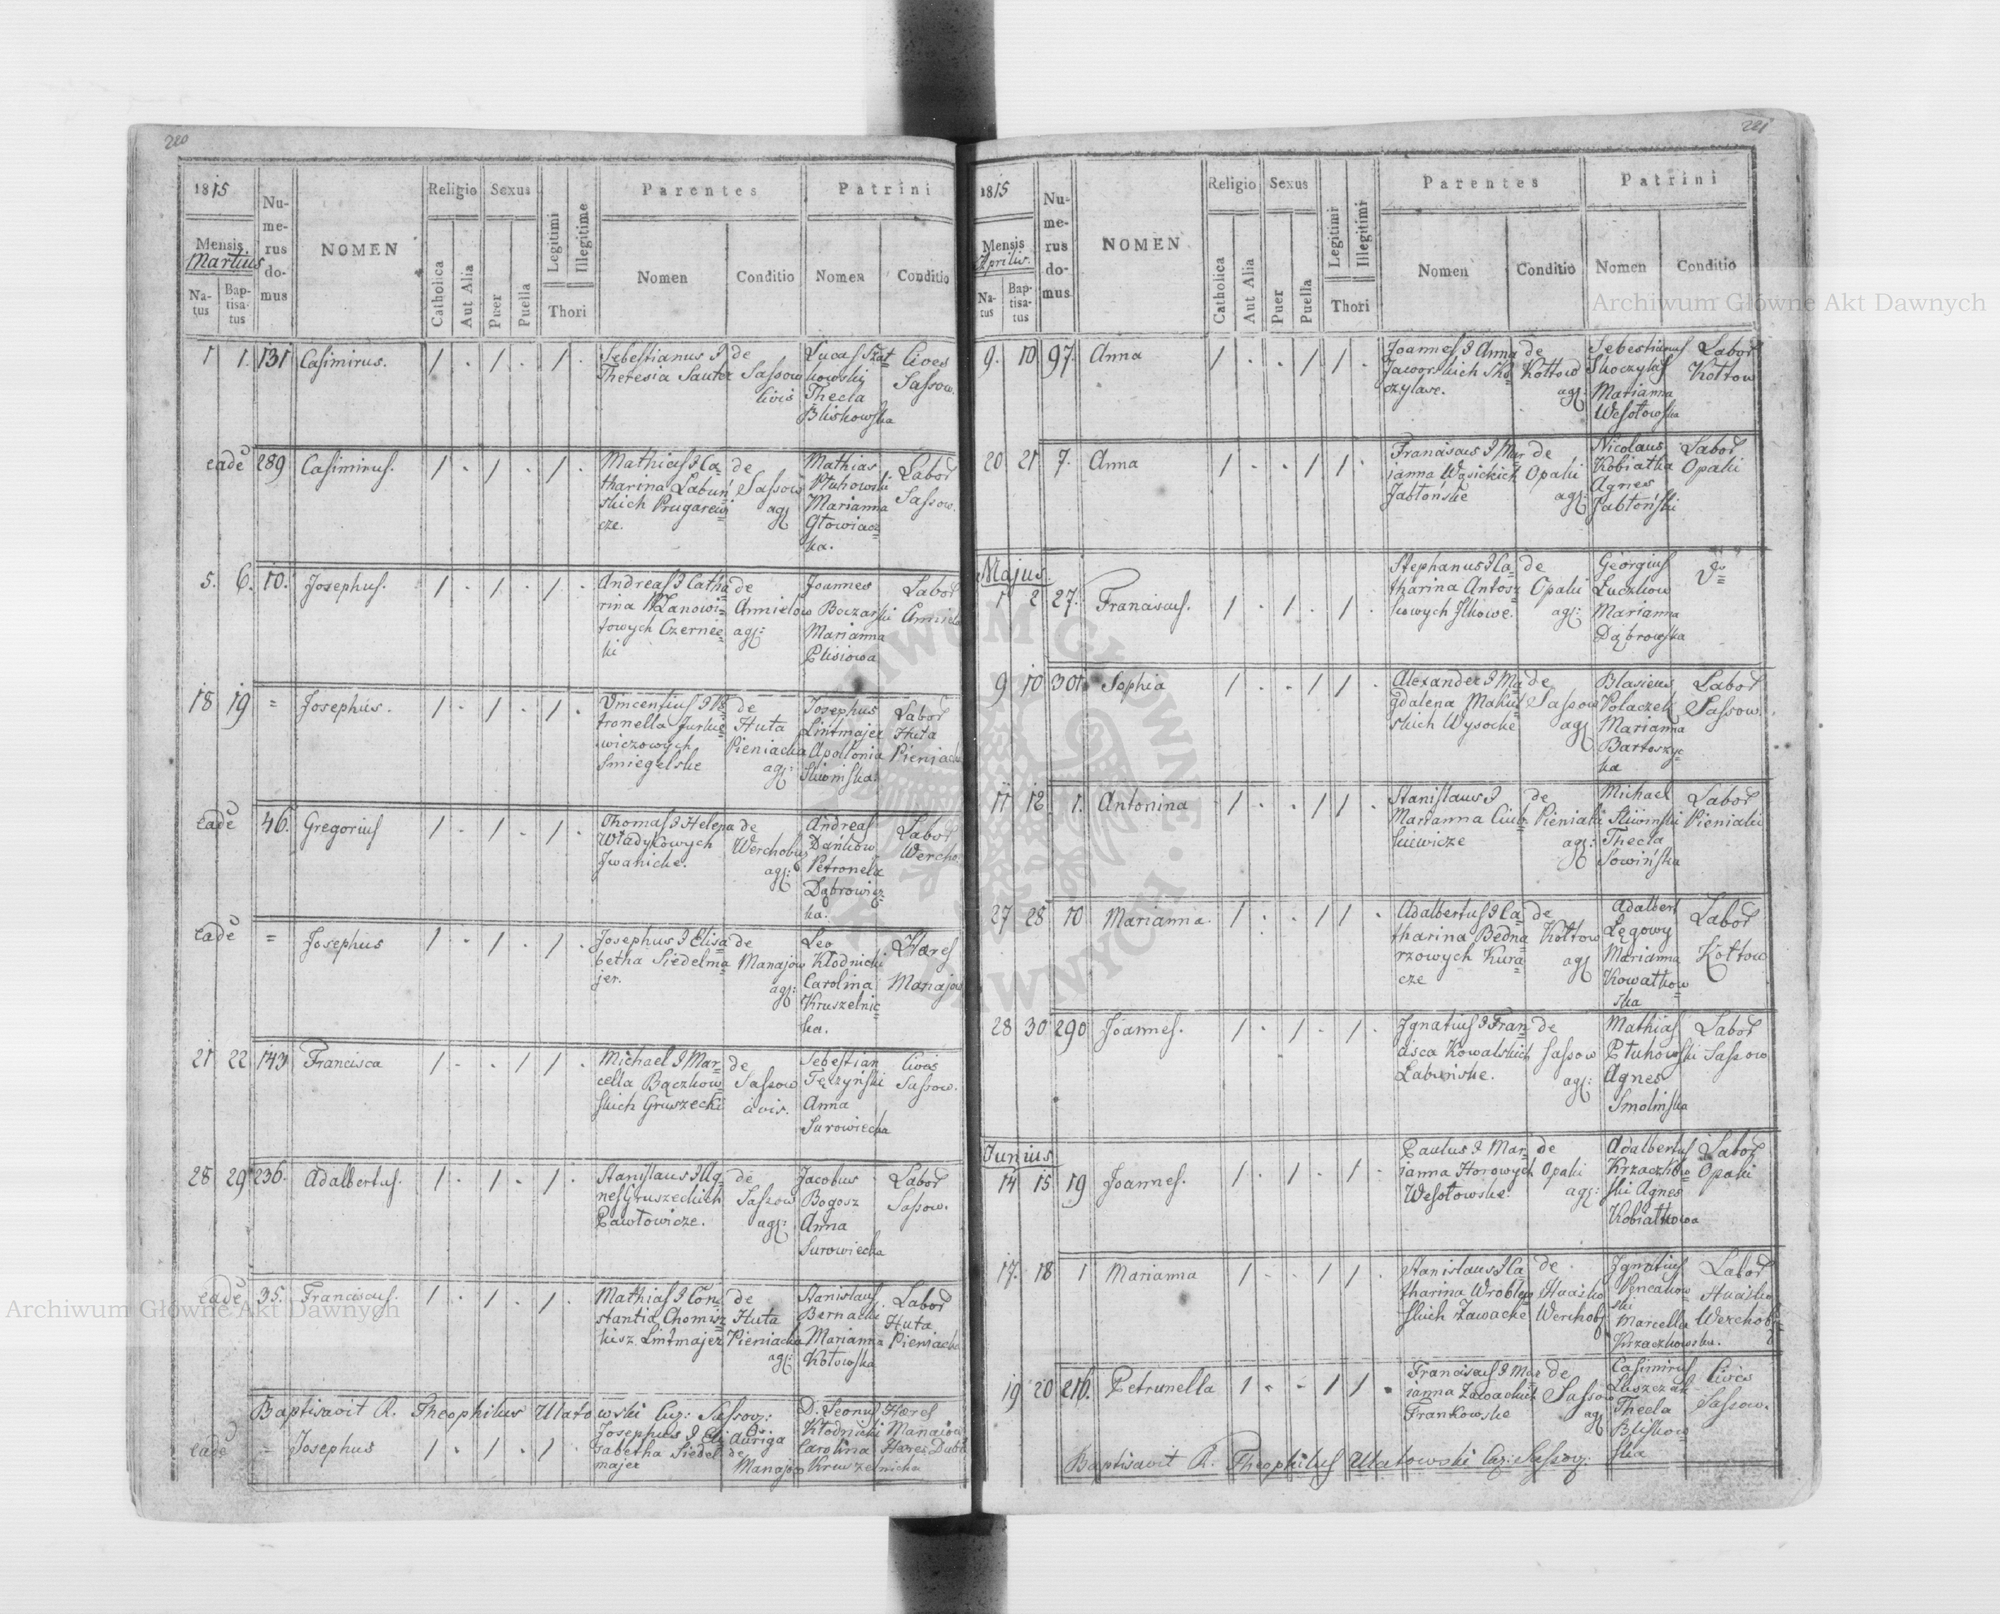 220
1815
Mensis
Martius
Na-
tus
Bap-
tisa-
tus
Nu-
me-
rus
do-
mus
NOMEN
Religio
Catholica
Aut Alia
Sexus
Puer
Puella
Legitimi
Illegitime
Thori
Parentes
Nomen
Conditio
Patrini
Nomen
Conditio
1 1. 131 Casimirus. 1 . 1 . 1 .
Sebestianus &
Theresia Sauter
de
Sassow
Civis
Lucas Szat
kowski
Thecla
Bliskowska
Cives
Sassow.
eade 289 Casimirus. 1 . 1 . 1 .
Mathias & Ca=
tharina Labuń
skich Prugarewi
cze.
de
Sassow
agr
Mathias
Ptuhowski
Marianna
Głowiacz=
ka.
Labor
Sassow.
5. 6. 10. Josephus. 1 . 1 . 1 .
Andreas & Catha
rina Zanowi=
towych Czernie=
ki
de
Anmielow
agr:
Joannes
Boczarski
Marianna
Elisiowa
Labor
18 19 = Josephus. 1 . 1 . 1 .
Vincentius & Pe
tronella Jurkie
wiczowych
Smiegelske
de
Huta
Pieniacka
agr:
Josephus
Lintmajer
Apolonia
Labor
Huta
eade 46. Gregorius 1 . 1 . 1 .
Thomas & Helena
Władykowych
Iwanicke.
de
Werchobus
agr:
Andreas
Dańkow
Petronela
Dąbrowicz
ka.
Labor
Wercho.
eade = Josephus 1 . 1 . 1 .
Josephus & Elisa
betha Siedelma
jer.
de
Manajow
agr:
Leo
Kłodnicki
Carolina
Kruszelnic=
ka.
Hæres
Manajow
21 22 143 Francisca 1 . . 1 1 .
Michael & Mar=
cella Bączkow=
skich Gruszecki
de
Sassow
civis.
Sebestian
Tęczyński
Anna
Surowiecka
Civis
Sassow.
28 29 236. Adalbertus. 1 . 1 . 1 .
Stanislaus & Ag=
nes Gruszeckich
Pawłowicze.
de
Sassow
agr:
Jacobus
Bogosz
Anna
Surowiecka
Labor
Sassow.
eade 35. Franciscus. 1 . 1 . 1 .
Mathias & Con=
stantia Chomisz
kisz Lintmajer
de
Huta
Pieniacka
agr:
Stanislaus
Bernacki
Marianna
Kotowska
Labor
Huta
Pieniacka
Baptisavit R. Theophilus Ulatowski Cur: Sassov:
eade = Josephus 1 . 1 . 1 .
Josephus & Eli
sabetha Siedel
majer
Auriga
de
Manajow
D. Leonus
Kłodnicki
Carolina
Kruszelnicka
Hæres
Manajow
221
1815
Mensis
Aprilis.
Na-
tus
Bap-
tisa-
tus
Nu-
me-
rus
do-
mus
NOMEN
Religio
Catholica
Aut Alia
Sexus
Puer
Puella
Legitimi
Illegitimi
Thori
Parentes
Nomen
Conditio
Patrini
Nomen
Conditio
9. 10 97. Anna 1 . . 1 1 .
Joannes & Anna
Jaworskich Sko
czylase.
de
Kołtow
agr:
Sebestianus
Skoczylas
Marianna
Wesołowska
Labor
Kołtow
20 21 7. Anna 1 . . 1 1 .
Franciscus & Mar
ianna Wąsickich
Jabłońske
de
Opaki
agr:
Nicolaus
Kobiatka
Agnes
Jabłoński
Labor
Opaki
Majus.
1 2 27. Franciscus. 1 . 1 . 1 .
Stephanus & Ca
tharina Antosz
kowych Ilkowe.
de
Opaki
agr:
Georgius
Luczkow
Marianna
Dąbrowska
9 10 301. Sophia 1 . . 1 1 .
Alexander & Ma
gdalena Makul
skich Wysocke
de
Sassow
agr
Blasieus
Polaczek
Marianna
Bartoszyc
ka
Labor
Sassow.
11 12 1. Antonina 1 . . 1 1 .
Stanislaus &
Marianna
de
Pieniaki
agr:
Michael
Sliwinski
Thecla
Sowińska
Labor
Pieniaki
27 28 10 Marianna. 1 . . 1 1 .
Adalbertus & Ca
tharina Bedna
rzowych Kura=
cze
de
Kołtow
agr
Adalbert
Łęgowy
Marianna
Kowałkow=
ska
Labor
Kołtow
28 30 290 Joannes. 1 . 1 . 1 .
Ignatius & Fran
cisca Kowalskich
Labuńske.
de
Sassow
agr:
Mathias
Ptuhowski
Agnes
Smolińska
Labor
Sassow
Junius
14 15 19 Joannes. 1 . 1 . 1 .
Paulus & Mar=
ianna Horowych
Wesołowske.
de
Opaki
agr:
Adalbertus
Krzaczkow=
ski Agnes
Kobiatkowa
Labor
Opaki
17. 18 1 Marianna 1 . . 1 1 .
Stanislaus & Ca
tharina Wroblew
skich Zawacke
de
Hućisko
Werchobs
Ignatius
Pencakow=
ski
Marcella
Krzaczkowska.
Labor
Hućisko
19 20 216. Petrunella 1 . . 1 1 .
Franciscus & Mar
ianna Zawackich
Frankowske
de
Sassow
agr
Casimirus
Luszczak
Thecla
Bliskow=
ska
Civis
Sassow.
Baptisavit R. Theophilus Ulatowski Cur: Sassov:
Archiwum Główne Akt Dawnych
Archiwum Główne Akt Dawnych